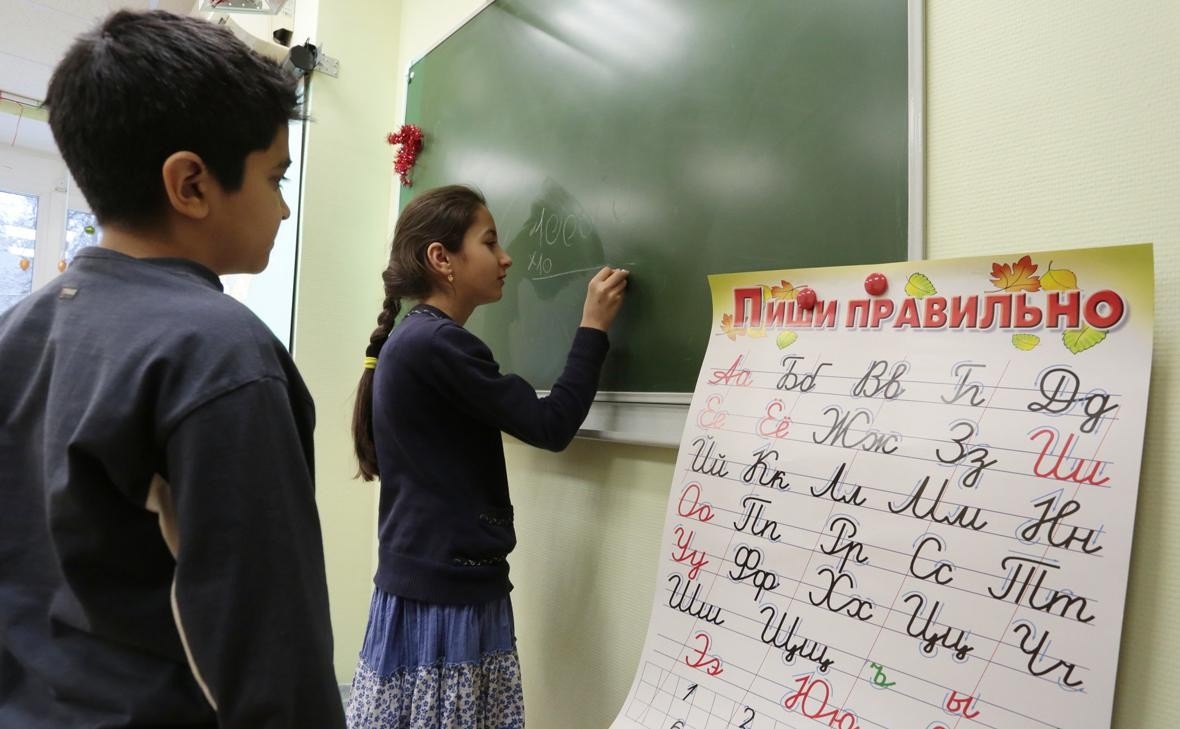 1000
Пиши правильно
Аа Бб Вв Гг Дд
Ее Ёё Жж Зз Ии
Йй Кк Лл Мм Нн
Оо Пп Рр Сс Тт
Уу Фф Хх Цц Чч
Шш Щщ ъ ы
Ээ Юю
1 2